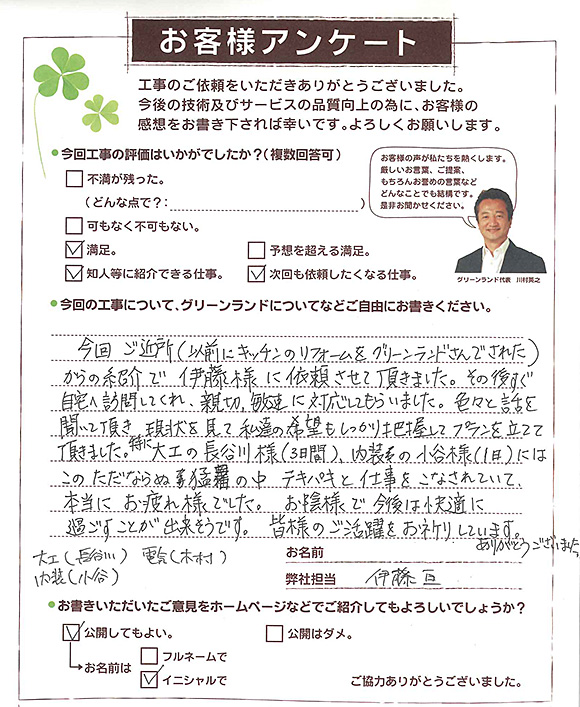 お客様アンケート
工事のご依頼をいただきありがとうございました。
今後の技術及びサービスの品質向上の為に、お客様の
感想をお書き下されば幸いです。よろしくお願いします。
●今回工事の評価はいかがでしたか?(複数回答可)
不満が残った。
(どんな点で?: )
可もなく不可もない。
満足。 予想を超える満足。
知人等に紹介できる仕事。 次回も依頼したくなる仕事。
お客様の声が私たちを熱くします。
厳しいお言葉、ご提案、
もちろんお誉めの言葉など
どんなことでも結構です。
是非お聞かせください。
グリーンランド代表 川村英之
●今回の工事について、グリーンランドについてなどご自由にお書きください。
今回 ご近所(以前にキッチンのリフォームをグリーンランドさんでされた)
からの紹介で 伊藤様に依頼させて頂きました。その後すぐ
自宅へ訪問してくれ、親切、敏速に対応してもらいました。色々と話を
聞いて頂き、現状を見て私達の希望もしっかり把握してプランを立てて
頂きました。特に大工の長谷川様(3日間)、内装の小谷様(1日)には
このただならぬ猛暑の中 テキパキと仕事をこなされていて、
本当にお疲れ様でした。 お陰様で今後は快適に
過ごすことが出来そうです。 皆様のご活躍をお祈りしています。
ありがとうございました
大工(長谷川) 電気(木村)
内装(小谷)
お名前
弊社担当 伊藤 亘
●お書きいただいたご意見をホームページなどでご紹介してもよろしいでしょうか?
公開してもよい。 公開はダメ。
お名前は フルネームで
イニシャルで
ご協力ありがとうございました。